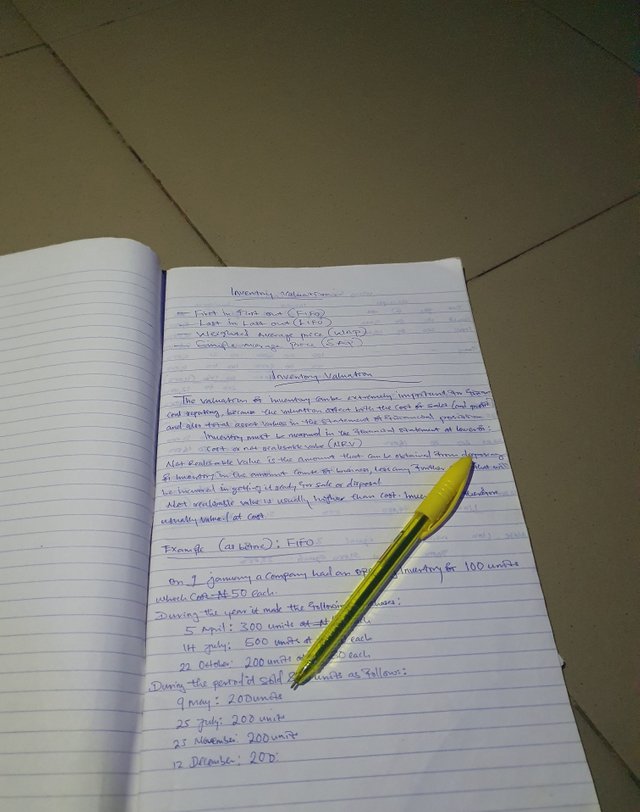 Inventory Valuation
- First in First out (FIFO)
- Last in Last out (LIFO)
- Weighted Average price (WAP)
- Simple Average price (SAP)
Inventory Valuation
The valuation of inventory can be extremely important in
reporting, because the valuation affect both the cost of sales (and profit)
and also total asset values in the statement of financial position
Inventory must be in the financial statement at lower of:
Cost or net realisable value (NRV)
Net Realisable Value is the amount that can be obtained from disposing
of inventory in the course of business, less any further that will
be incurred in getting it ready for sale or disposal
Net realisable value is usually higher than cost.
usually valued at cost
Example (as before): FIFO
On 1 January a company had an inventory of 100 units
which cost ₦50 each.
During the year it made the following
5 April: 300 units at each
14 July: 500 units each
22 October: 200 units each
During the period it sold units as follows:
9 May: 200 units
25 July: 200 units
23 November: 200 units
12 December: 200